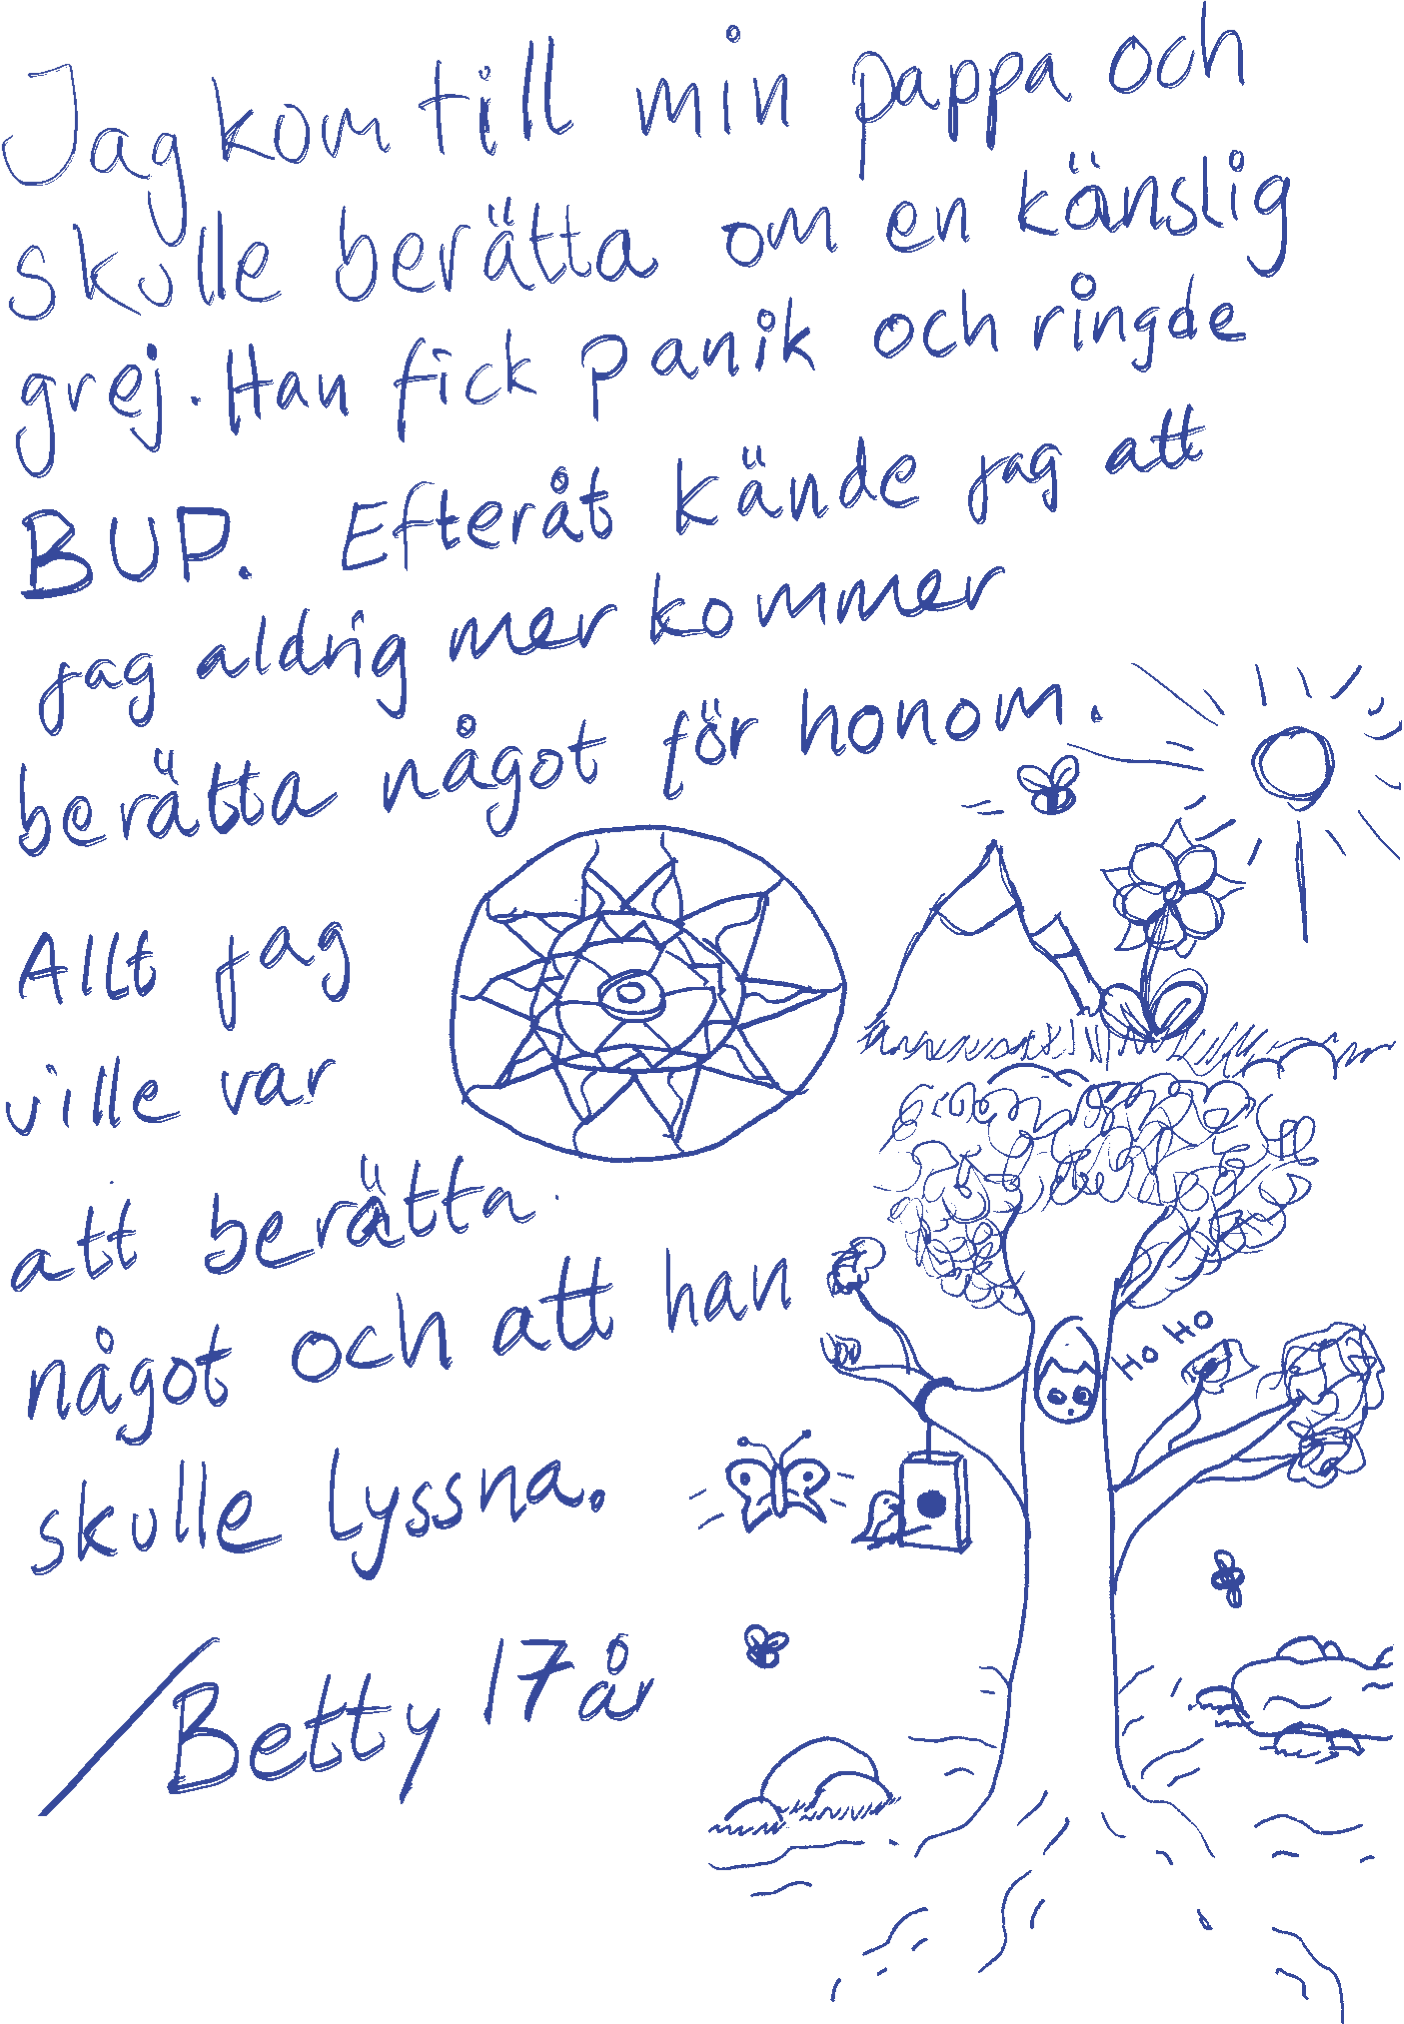 Jag kom till min pappa och
skulle berätta om en känslig
grej. Han fick panik och ringde
BUP. Efteråt kände jag att
jag aldrig mer kommer
berätta något för honom.
Allt jag
ville var
att berätta
något och att han
skulle lyssna.
/Betty 17 år
HO HO